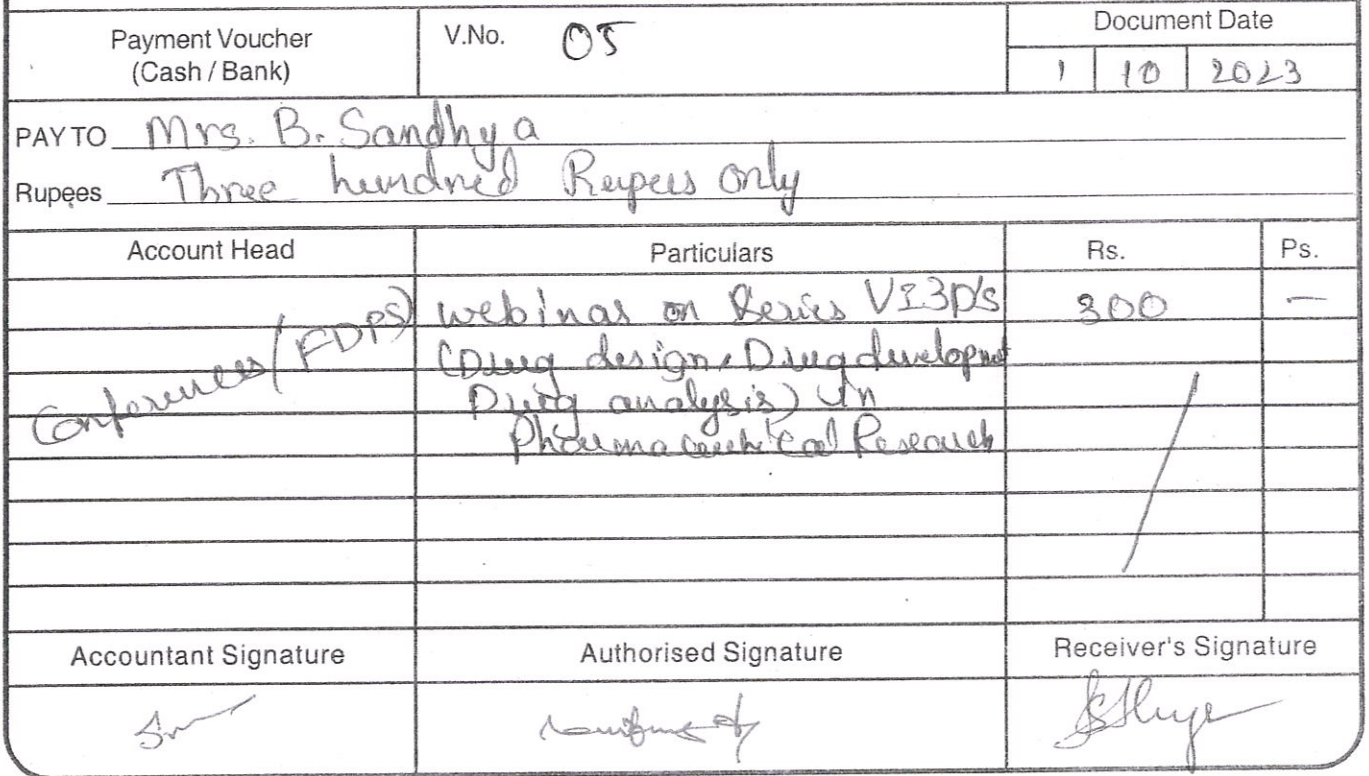 Payment Voucher
(Cash / Bank)
V.No. 05
Document Date
1 10 2023
PAY TO Mrs. B. Sandhya
Rupees Three hundred Rupees only
Account Head Particulars Rs. Ps.
Conferences/(FDPS)
webinar on Series VI 3D's 300 —
(Drug design, Drug developmet
Drug analysis) in
Pharmaceutical Research
Accountant Signature Authorised Signature Receiver's Signature